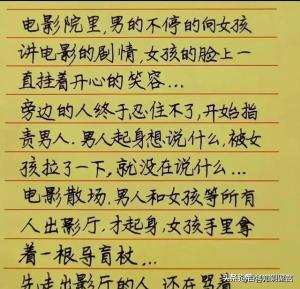 电影院里,男的不停的向女孩
讲电影的剧情,女孩的脸上一
直挂着开心的笑容...
旁边的人终于忍住不了,开始指
责男人.男人起身想说什么,被女
孩拉了一下,就没在说什么...
电影散场,男人和女孩等所有
人出影厅,才起身,女孩手里拿
着一根导盲杖...
先走出影厅的人,还在骂着